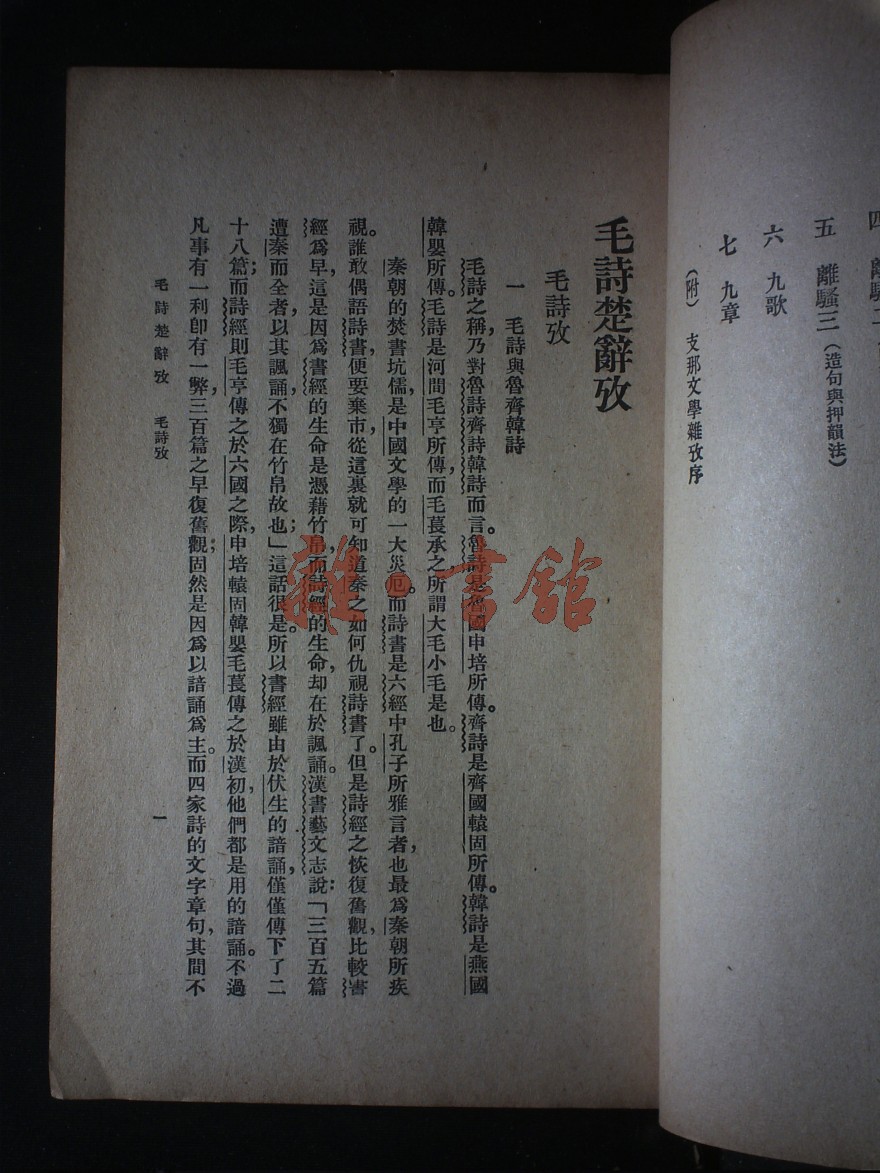 四　離騷二
五　離騷三（造句與押韻法）
六　九歌
七　九章
（附）支那文學雜攷序
毛詩楚辭攷
毛詩攷
一　毛詩與魯齊韓詩
毛詩之稱，乃對魯詩齊詩韓詩而言。魯詩是魯國申培所傳。齊詩是齊國轅固所傳。韓詩是燕國
韓嬰所傳。毛詩是河間毛亨所傳，而毛萇承之所謂大毛小毛是也。
秦朝的焚書坑儒，是中國文學的一大災厄。而詩書是六經中孔子所雅言者，也最爲秦朝所疾
視。誰敢偶語詩書，便要棄市，從這裏就可知道秦之如何仇視詩書了。但是詩經之恢復舊觀，比較書
經爲早，這是因爲書經的生命是憑藉竹帛，而詩經的生命，却在於諷誦。漢書藝文志說：「三百五篇
遭秦而全者，以其諷誦不獨在竹帛故也；」這話很是。所以書經雖由於伏生的諳誦，僅僅傳下了二
十八篇；而詩經則毛亨傳之於六國之際，申培轅固韓嬰毛萇傳之於漢初，他們都是用的諳誦。不過
凡事有一利卽有一弊，三百篇之早復舊觀；固然是因爲以諳誦爲主。而四家詩的文字章句，其間不
毛詩楚辭攷　毛詩攷
一
雜·書館